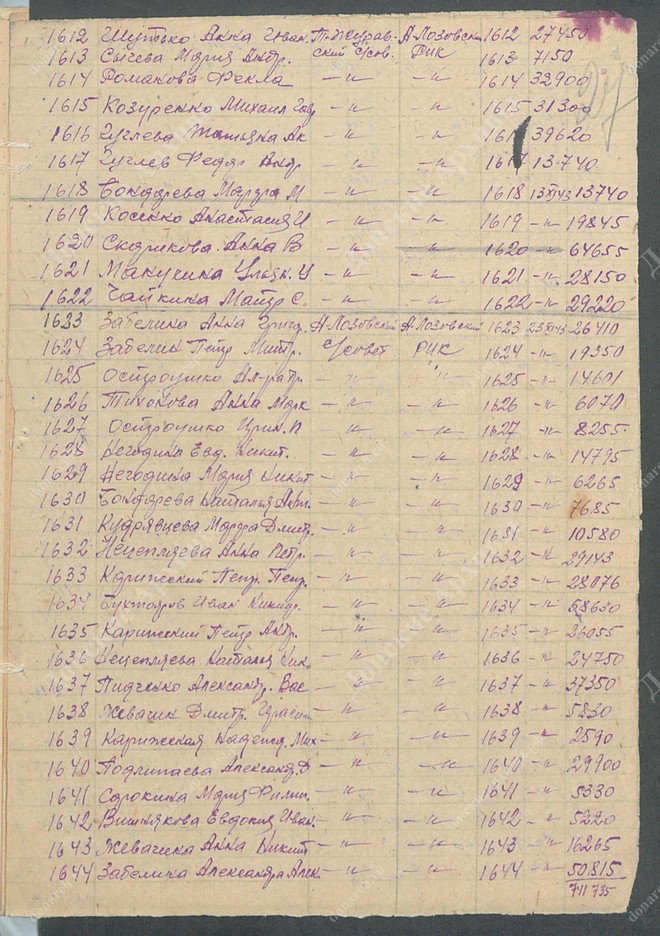 1612 Шутько Анна Иван. Т-Журав- А-Лозовский 1612 27450
1613 Сычева Мария Андр. ский с/сов. РИК 1613 7150
1614 Романова Фекла -"- -"- 1614 32900
1615 Козуренко Михаил -"- -"- 1615 31300
1616 Гуглева Татьяна Ак -"- -"- 161 39620
1617 Гуглев Федор Андр -"- -"- 1617 13740
1618 Бондарева Марфа М -"- -"- 1618 13740
1619 Косенко Анастасия И -"- -"- 1619 -"- 19845
1620 Анна В -"- -"- 1620 -"- 64655
1621 Макухина И -"- -"- 1621 -"- 28150
1622 Чайкина С. -"- -"- 1622 -"- 29220
1623 Забелина Анна Григ. А-Лозовский А-Лозовский 1623 26410
1624 Забелин Петр Митр. с/совет РИК 1624 -"- 19350
1625 Остроушко -"- -"- 1625 -"- 14601
1626 Тихонова Анна Марк -"- -"- 1626 -"- 6070
1627 Остроушко Ирин. П -"- -"- 1627 -"- 8255
1628 Негодина Евд. Никит. -"- -"- 1628 -"- 14795
1629 Негодина Мария Никит -"- -"- 1629 -"- 6265
1630 Бондарева Наталья -"- -"- 1630 -"- 7685
1631 Кудрявцева Марфа Дмитр. -"- -"- 1631 -"- 10580
1632 Нецепляева Анна Петр. -"- -"- 1632 -"- 29143
1633 Карижский Петр. Петр. -"- -"- 1633 -"- 28076
1634 Иван -"- -"- 1634 -"- 58630
1635 Карижский Петр Андр. -"- -"- 1635 -"- 26055
1636 Нецепляева Наталия Ник. -"- -"- 1636 -"- 24750
1637 Пидченко Александр. Вас -"- -"- 1637 -"- 37350
1638 Жевагин Дмитр. -"- -"- 1638 -"- 5830
1639 Карижская Надежд. Мих -"- -"- 1639 -"- 2590
1640 Подлипаева Александ. Ф -"- -"- 1640 -"- 29900
1641 Сорокина Мария Филип. -"- -"- 1641 -"- 5330
1642 Вишнякова Евдокия Иван. -"- -"- 1642 -"- 5220
1643 Жевагина Анна Никит -"- -"- 1643 -"- 16265
1644 Забелина Александра Алек -"- -"- 1644 -"- 50815
741735